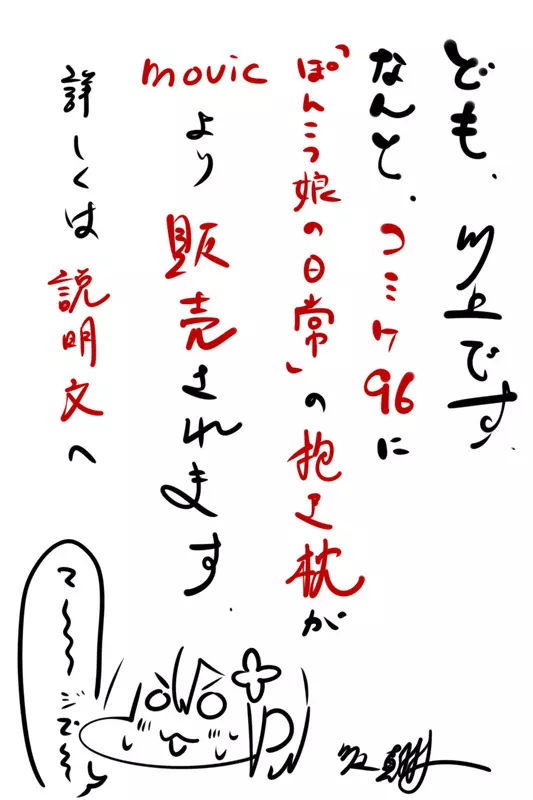 ども、川上です。
なんと、コミケ96に
「ぽんこつ娘の日常」の抱き枕が
movicより販売されます。
詳しくは説明文へ
て〜〜〜ジで〜〜
川上